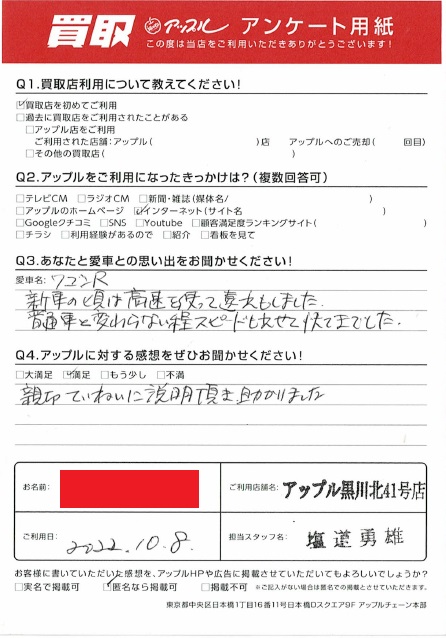 買取 アップル アンケート用紙
この度は当店をご利用いただきありがとうございます!
Q1.買取店利用について教えてください!
☑買取店を初めてご利用
□過去に買取店をご利用されたことがある
□アップル店をご利用
ご利用された店舗:アップル( )店 アップルへのご売却( 回目)
□その他の買取店( )
Q2.アップルをご利用になったきっかけは?(複数回答可)
□テレビCM □ラジオCM □新聞・雑誌(媒体名/ )
□アップルのホームページ ☑インターネット(サイト名 )
□Googleクチコミ □SNS □Youtube □顧客満足度ランキングサイト( )
□チラシ □利用経験があるので □紹介 □看板を見て
Q3.あなたと愛車との思い出をお聞かせください!
愛車名:ワゴンR
新車の頃は高速を使って遠出もしました.
普通車と変わらない程スピードも出せて快てきでした.
Q4.アップルに対する感想をぜひお聞かせください!
□大満足 ☑満足 □もう少し □不満
親切ていねいに説明頂き助かりました
お名前:
ご利用店舗名:アップル黒川北41号店
ご利用日: 2022.10.8.
担当スタッフ名: 塩道勇雄
お客様に書いていただいた感想を、アップルHPや広告に掲載させていただいてもよろしいでしょうか?
□実名で掲載可 ☑匿名なら掲載可 □掲載不可 ※ご記入がない場合は匿名での掲載とさせていただきます。
東京都中央区日本橋1丁目16番11号日本橋Dスクエア9F アップルチェーン本部